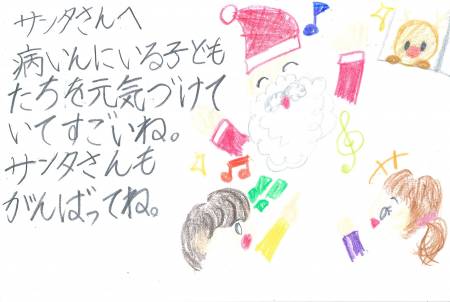 サンタさんへ
病いんにいる子ども
たちを元気づけて
いてすごいね。
サンタさんも
がんばってね。